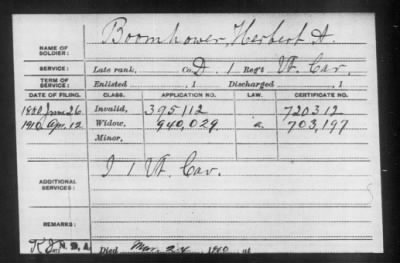 NAME OF SOLDIER: Boomhower, Herbert A.
SERVICE: Late rank, Co. D. 1 Reg't Vt. Cav.
TERM OF SERVICE: Enlisted , 1 Discharged , 1
DATE OF FILING. CLASS. APPLICATION NO. LAW. CERTIFICATE NO.
1880 June 26 Invalid, 395112 720312
1910 Apr. 12 Widow, 940,029 a. 703,197
Minor,
ADDITIONAL SERVICES: I 1 Vt. Cav.
REMARKS:
Died Mar. 24 1910 at